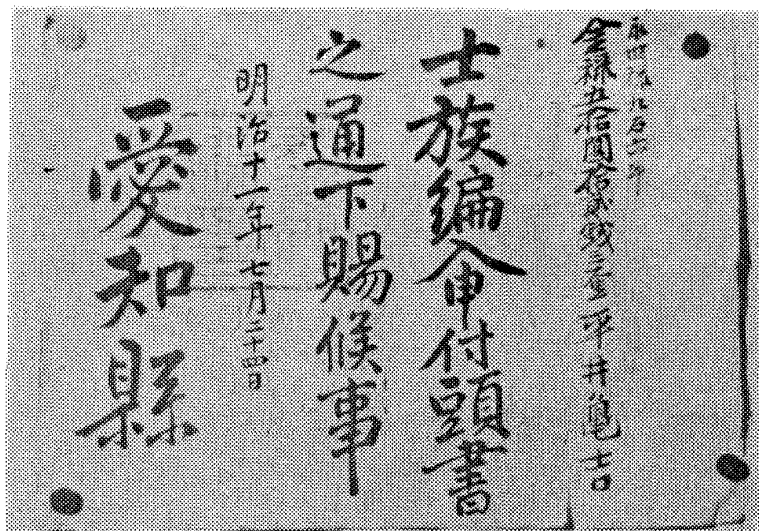 金禄五拾圓拾弐銭三厘 平井亀吉
士族編入申付頭書
之通下賜候事
明治十一年七月二十四日
愛知縣